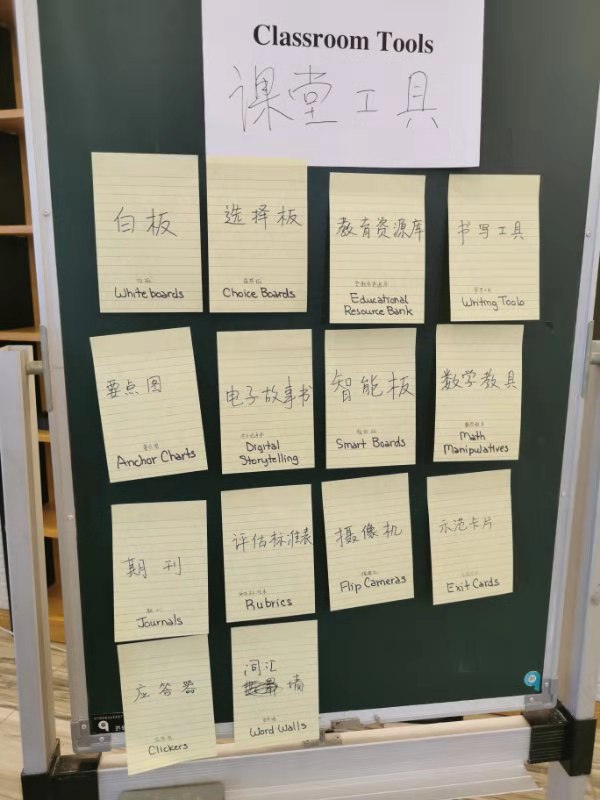 Classroom Tools
课堂工具
白板
Whiteboards
选择板
Choice Boards
教育资源库
Educational
Resource Bank
书写工具
Writing Tools
要点图
Anchor Charts
电子故事书
Digital
Storytelling
智能板
Smart Boards
数学教具
Math
Manipulatives
期刊
Journals
评估标准表
Rubrics
摄像机
Flip Cameras
示范卡片
Exit Cards
应答器
Clickers
词汇
墙
Word Walls